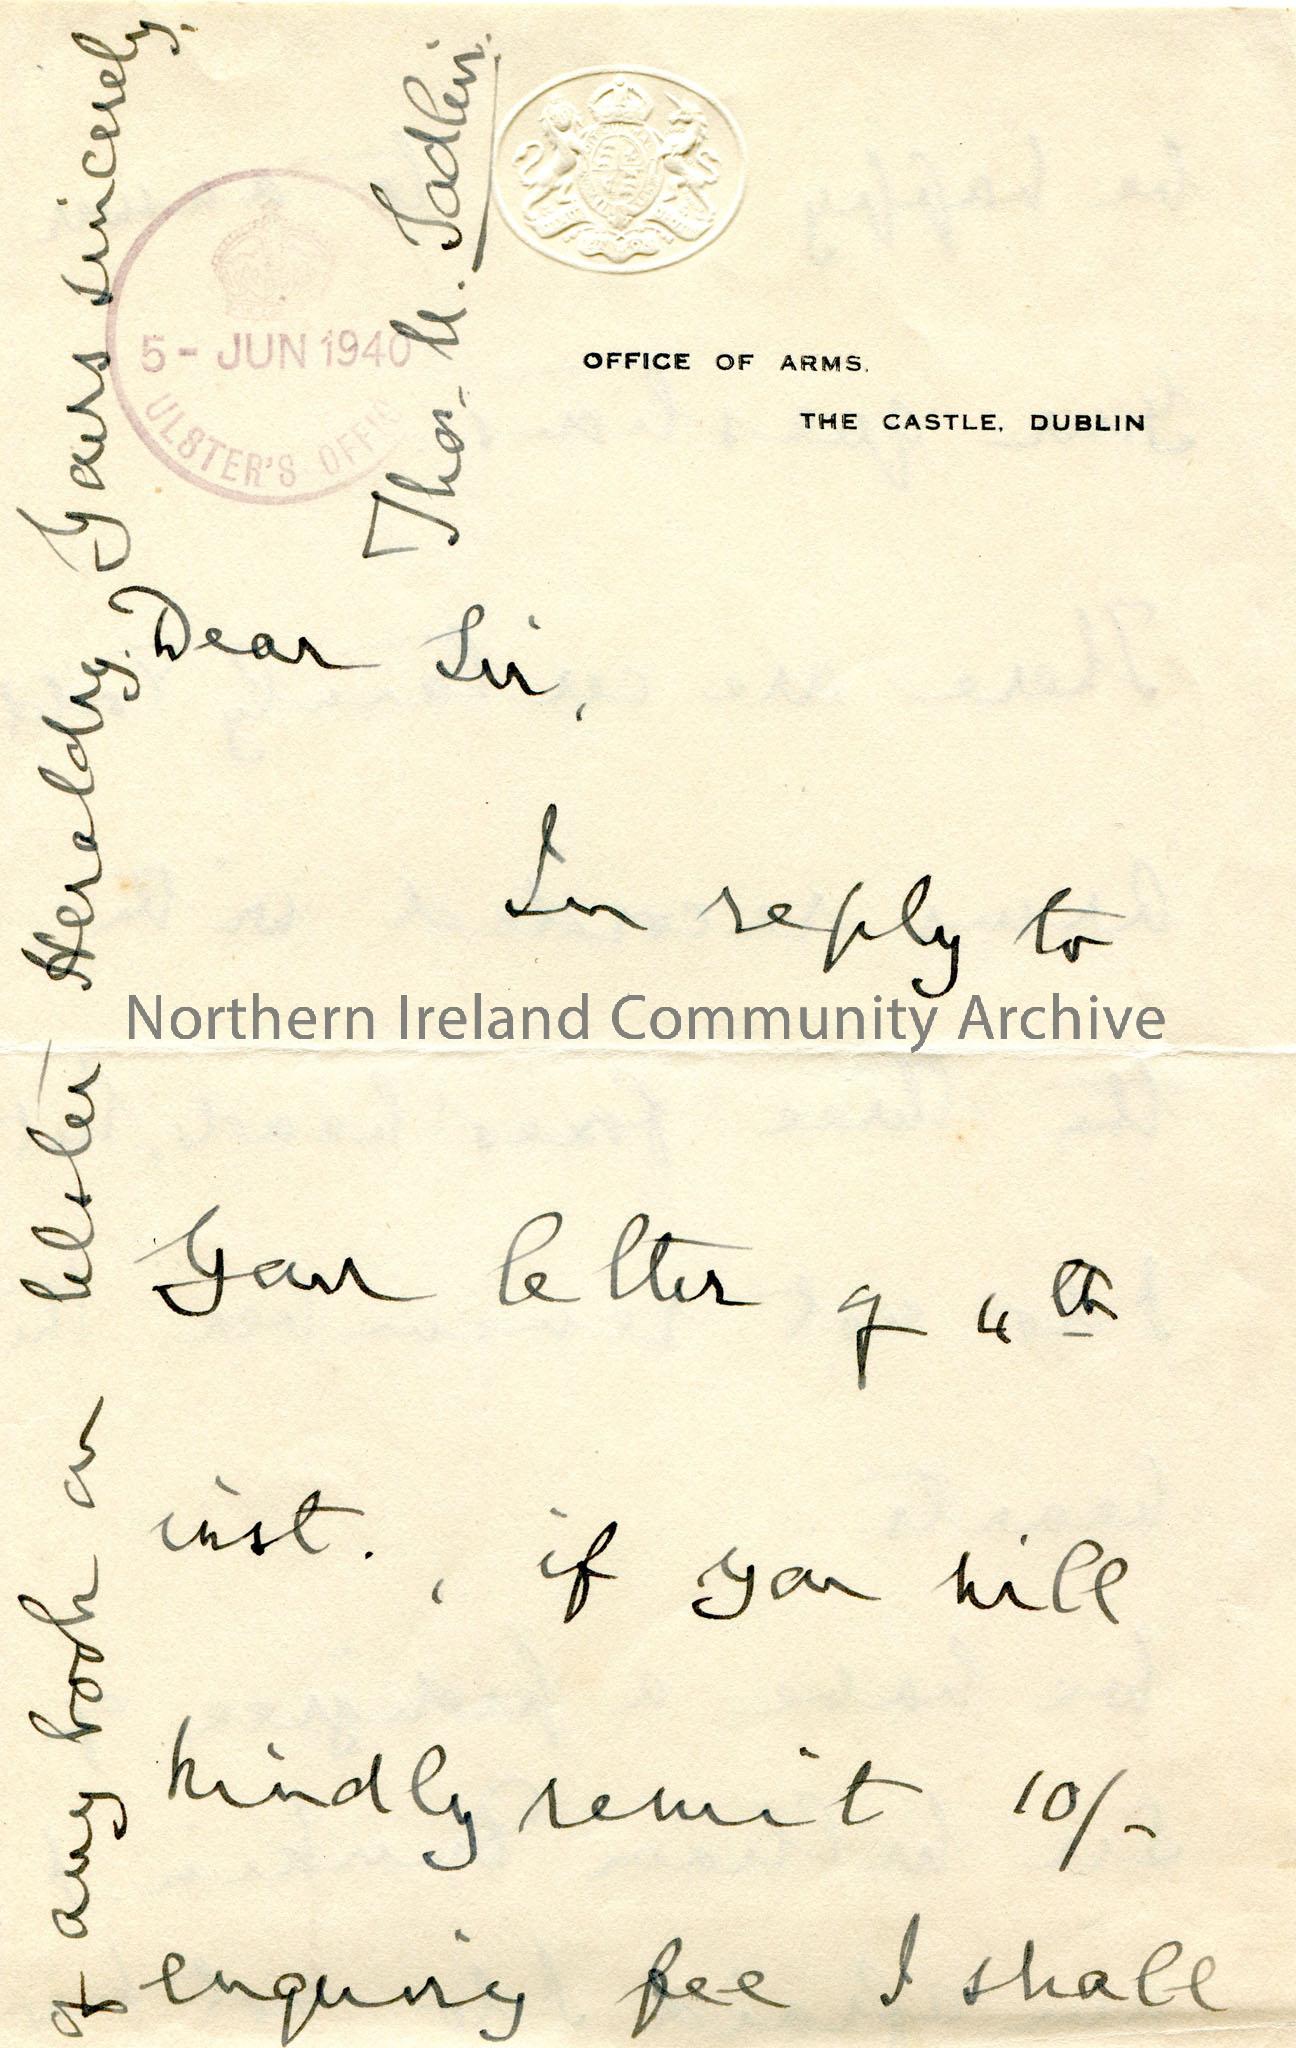 OFFICE OF ARMS.
THE CASTLE, DUBLIN
5 - JUN 1940
ULSTER'S OFFIC
Dear Sir,
In reply to
Northern Ireland Community Archive
Your letter of 4th
inst., if you will
kindly remit 10/-
enquiry fee I shall
of any book on Ulster Heraldry. Yours sincerely.
Thos. U. Sadleir.